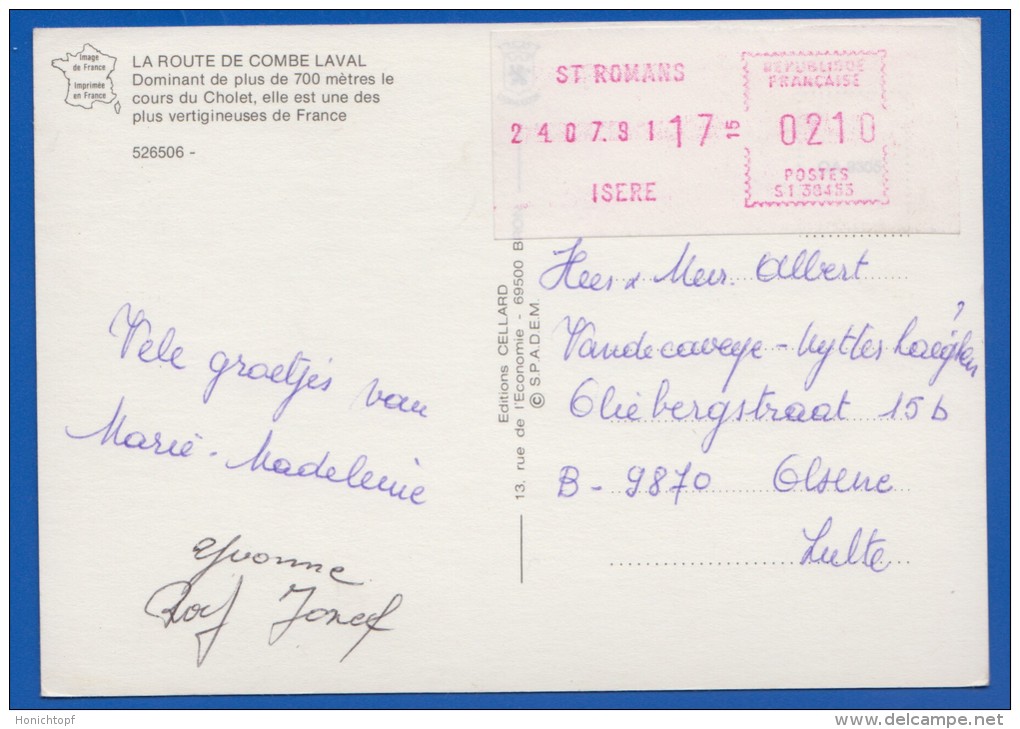 Image
de France
Imprimée
en France
LA ROUTE DE COMBE LAVAL
Dominant de plus de 700 mètres le
cours du Cholet, elle est une des
plus vertigineuses de France
526506 -
ST ROMANS
24.07.91 17 15
ISERE
REPUBLIQUE
FRANÇAISE
0210
POSTES
S1 38453
Editions CELLARD
13, rue de l'Economie - 69500 BRON
© S.P.A.D.E.M.
Vele groetjes van
Marie-Madeleine
Yvonne
Jozef
Albert
Vandecaveye -
Oliebergstraat 15b
B - 9870 Olsene
Zulte
Honichtopf
www.delcampe.net